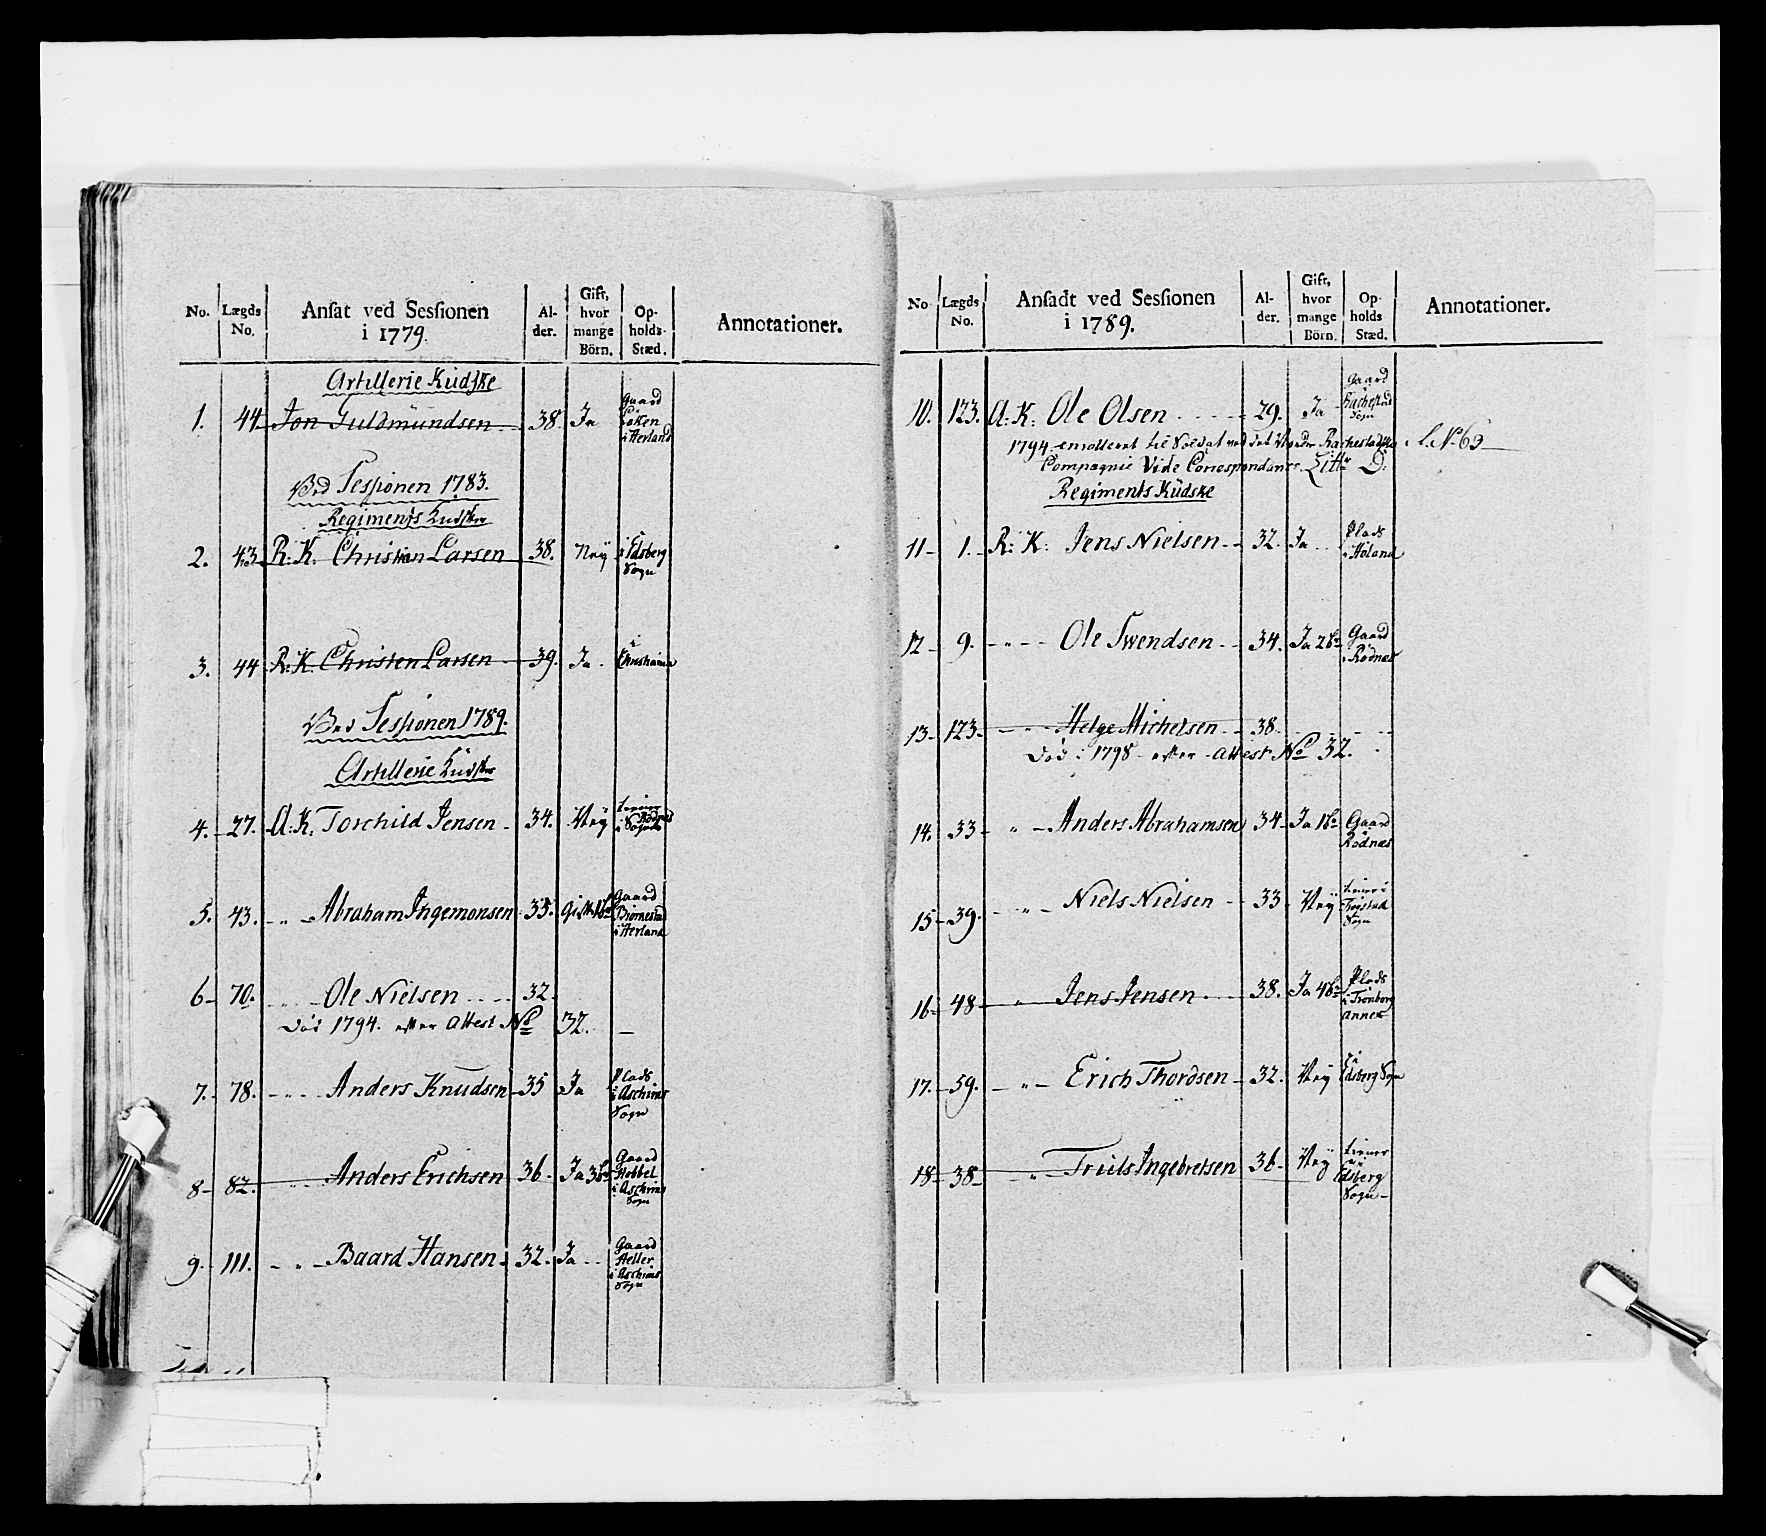 No. Lægds No. Ansat ved Sessionen i 1779. Alder. Gift, hvor mange Börn. Opholds-Stæd. Annotationer.
Artillerie Kudske
1. 44 Jon Guldmundsen 38 Ja Gaard Löken i Herland
Ved Sessionen 1783.
Regiments Kudske
2. 43 R: K. Christian Larsen 38. Ney i Edsberg Sogn
3. 44 R: K. Christen Larsen 39. Ja i
Ved Sessionen 1789.
Artillerie Kudske
4. 27. A: K. Torchild Jensen 34. Ney tiener i Rödnes Sogn
5. 43. " Abraham Ingemonsen 35. Gift Gaard Biörnestad i Herland
6 70. Ole Nielsen 32.
död 1794. efter Attest No 32.
7. 78. " Anders Knudsen 35 Ja Plads i Aschims Sogn
8 82. " Anders Erichsen 36 Ja 3 b: Gaard Hobbel i Aschims Sogn
9. 111. " Baard Hansen 32. Ja Gaard Heller i Aschims Sogn
No Lægds No. Ansadt ved Sessionen i 1789. Alder. Gift, hvor mange Börn. Opholds Stæd. Annotationer.
10. 123. A: K: Ole Olsen 29. Ja Gaard Rachestad Sogn
1794 enrolleret til Soldat ved det Rachestadske L. No 63
Compagnie Vide Correspondance Littr D.
Regiments Kùdske
11 1. R: K: Jens Nielsen 32. Ja Plads i Höland
12 9. " Ole Swendsen 34. Ja 2 b: Gaard i Rödnæs
13 123 Helge Michelsen 38
Död i 1798 efter Attest No 32.
14. 33 " Anders Abrahamsen 34 Ja 1 b: Gaard Rödnæs
15 39. " Niels Nielsen 33 Ney tiener i Trögstad Sogn
16 48 " Jens Jensen 38. Ja 4 b: Plads i Trömborg annex
17. 59. " Erich Thordsen 32. Ney i Edsberg Sogn
18 38 " Truls Ingebretsen 36 Ney tiener i Edsberg Sogn